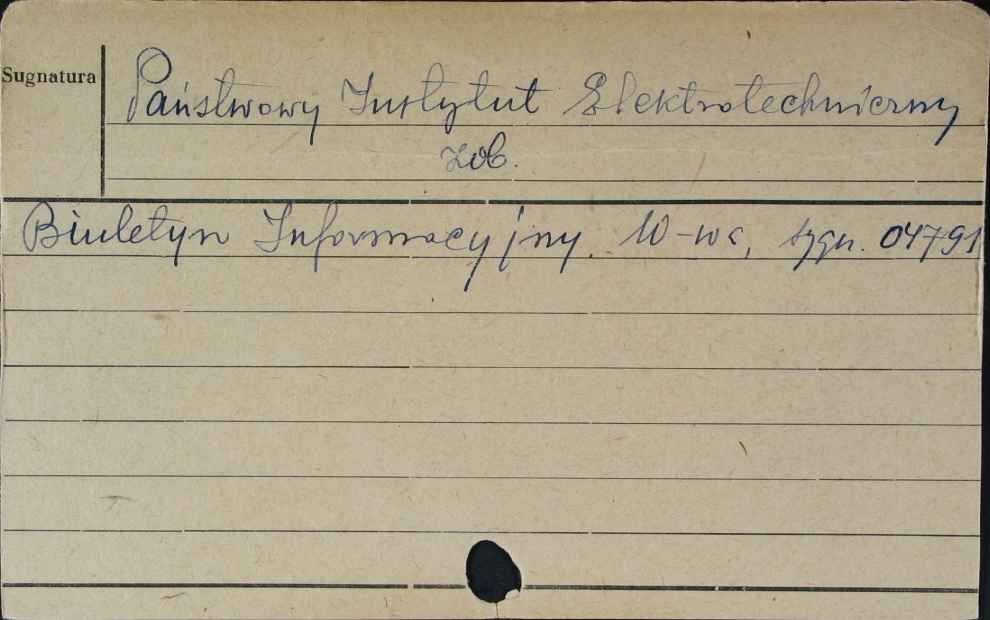 Sugnatura
Państwowy Instytut Elektrotechniczny
zob.
Biuletyn Informacyjny. W-wa, sygn. 04791